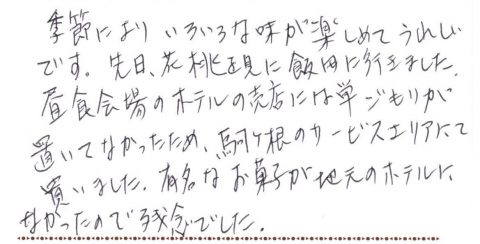 季節により いろいろな味が楽しめてうれしい
です。先日、花桃を見に飯田に行きました。
昼食会場のホテルの売店には
置いてなかったため、駒ヶ根のサービスエリアにて
買いました。有名なお菓子が地元のホテルに
なかったので残念でした。